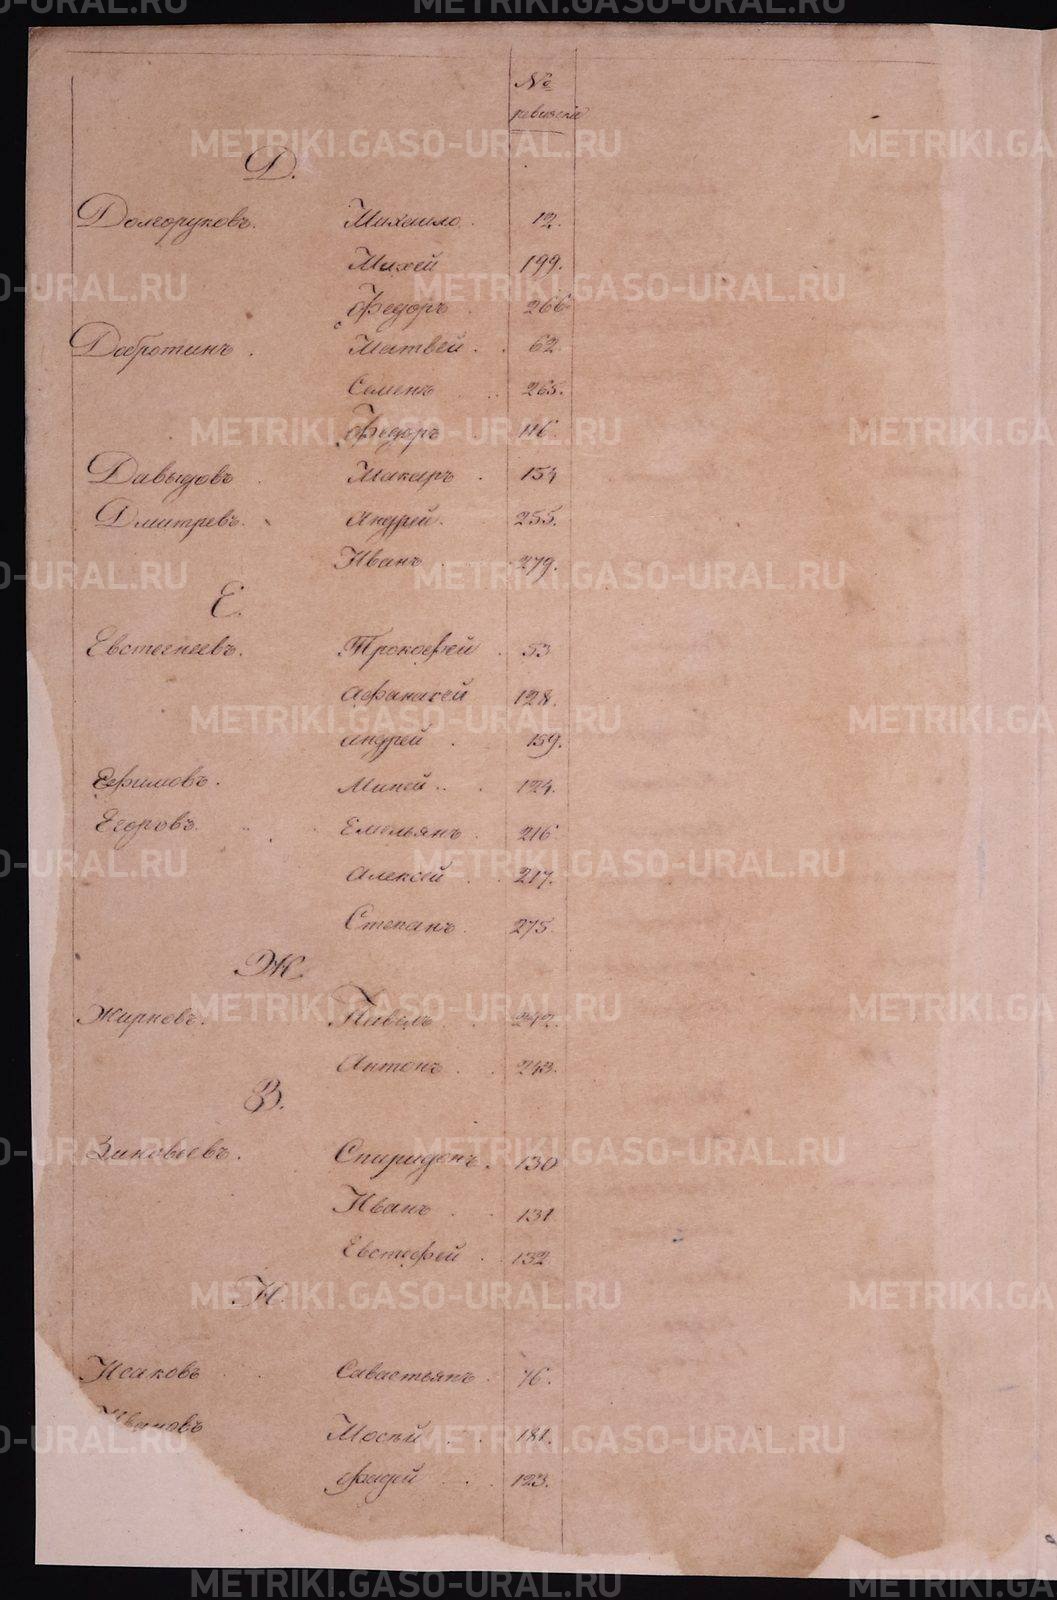 №
ревизскіе
Д.
Долгоруковъ. Михаило. 12.
Михей 199.
Федоръ. 266.
Добротинъ. Матвей. 62.
Семенъ 265.
Федоръ 116.
Давыдовъ. Макаръ. 154
Дмитревъ. Андрей. 255.
Иванъ. 279.
Е.
Евстегнеевъ. Прокофей. 53
Афанасей 128.
Андрей. 159.
Ефимовъ. Миней. 124.
Егоровъ. Емельянъ. 216
Алексей. 217.
Степанъ. 275.
Ж.
Жирновъ. Павелъ. 242.
Антонъ. 243.
З.
Зиновьевъ. Спиридонъ. 130
Иванъ. 131
Евстефей. 132
И.
Исаковъ Савастьянъ. 76.
Ивановъ Мосѣй 181.
Фадей 123.
METRIKI.GASO-URAL.RU